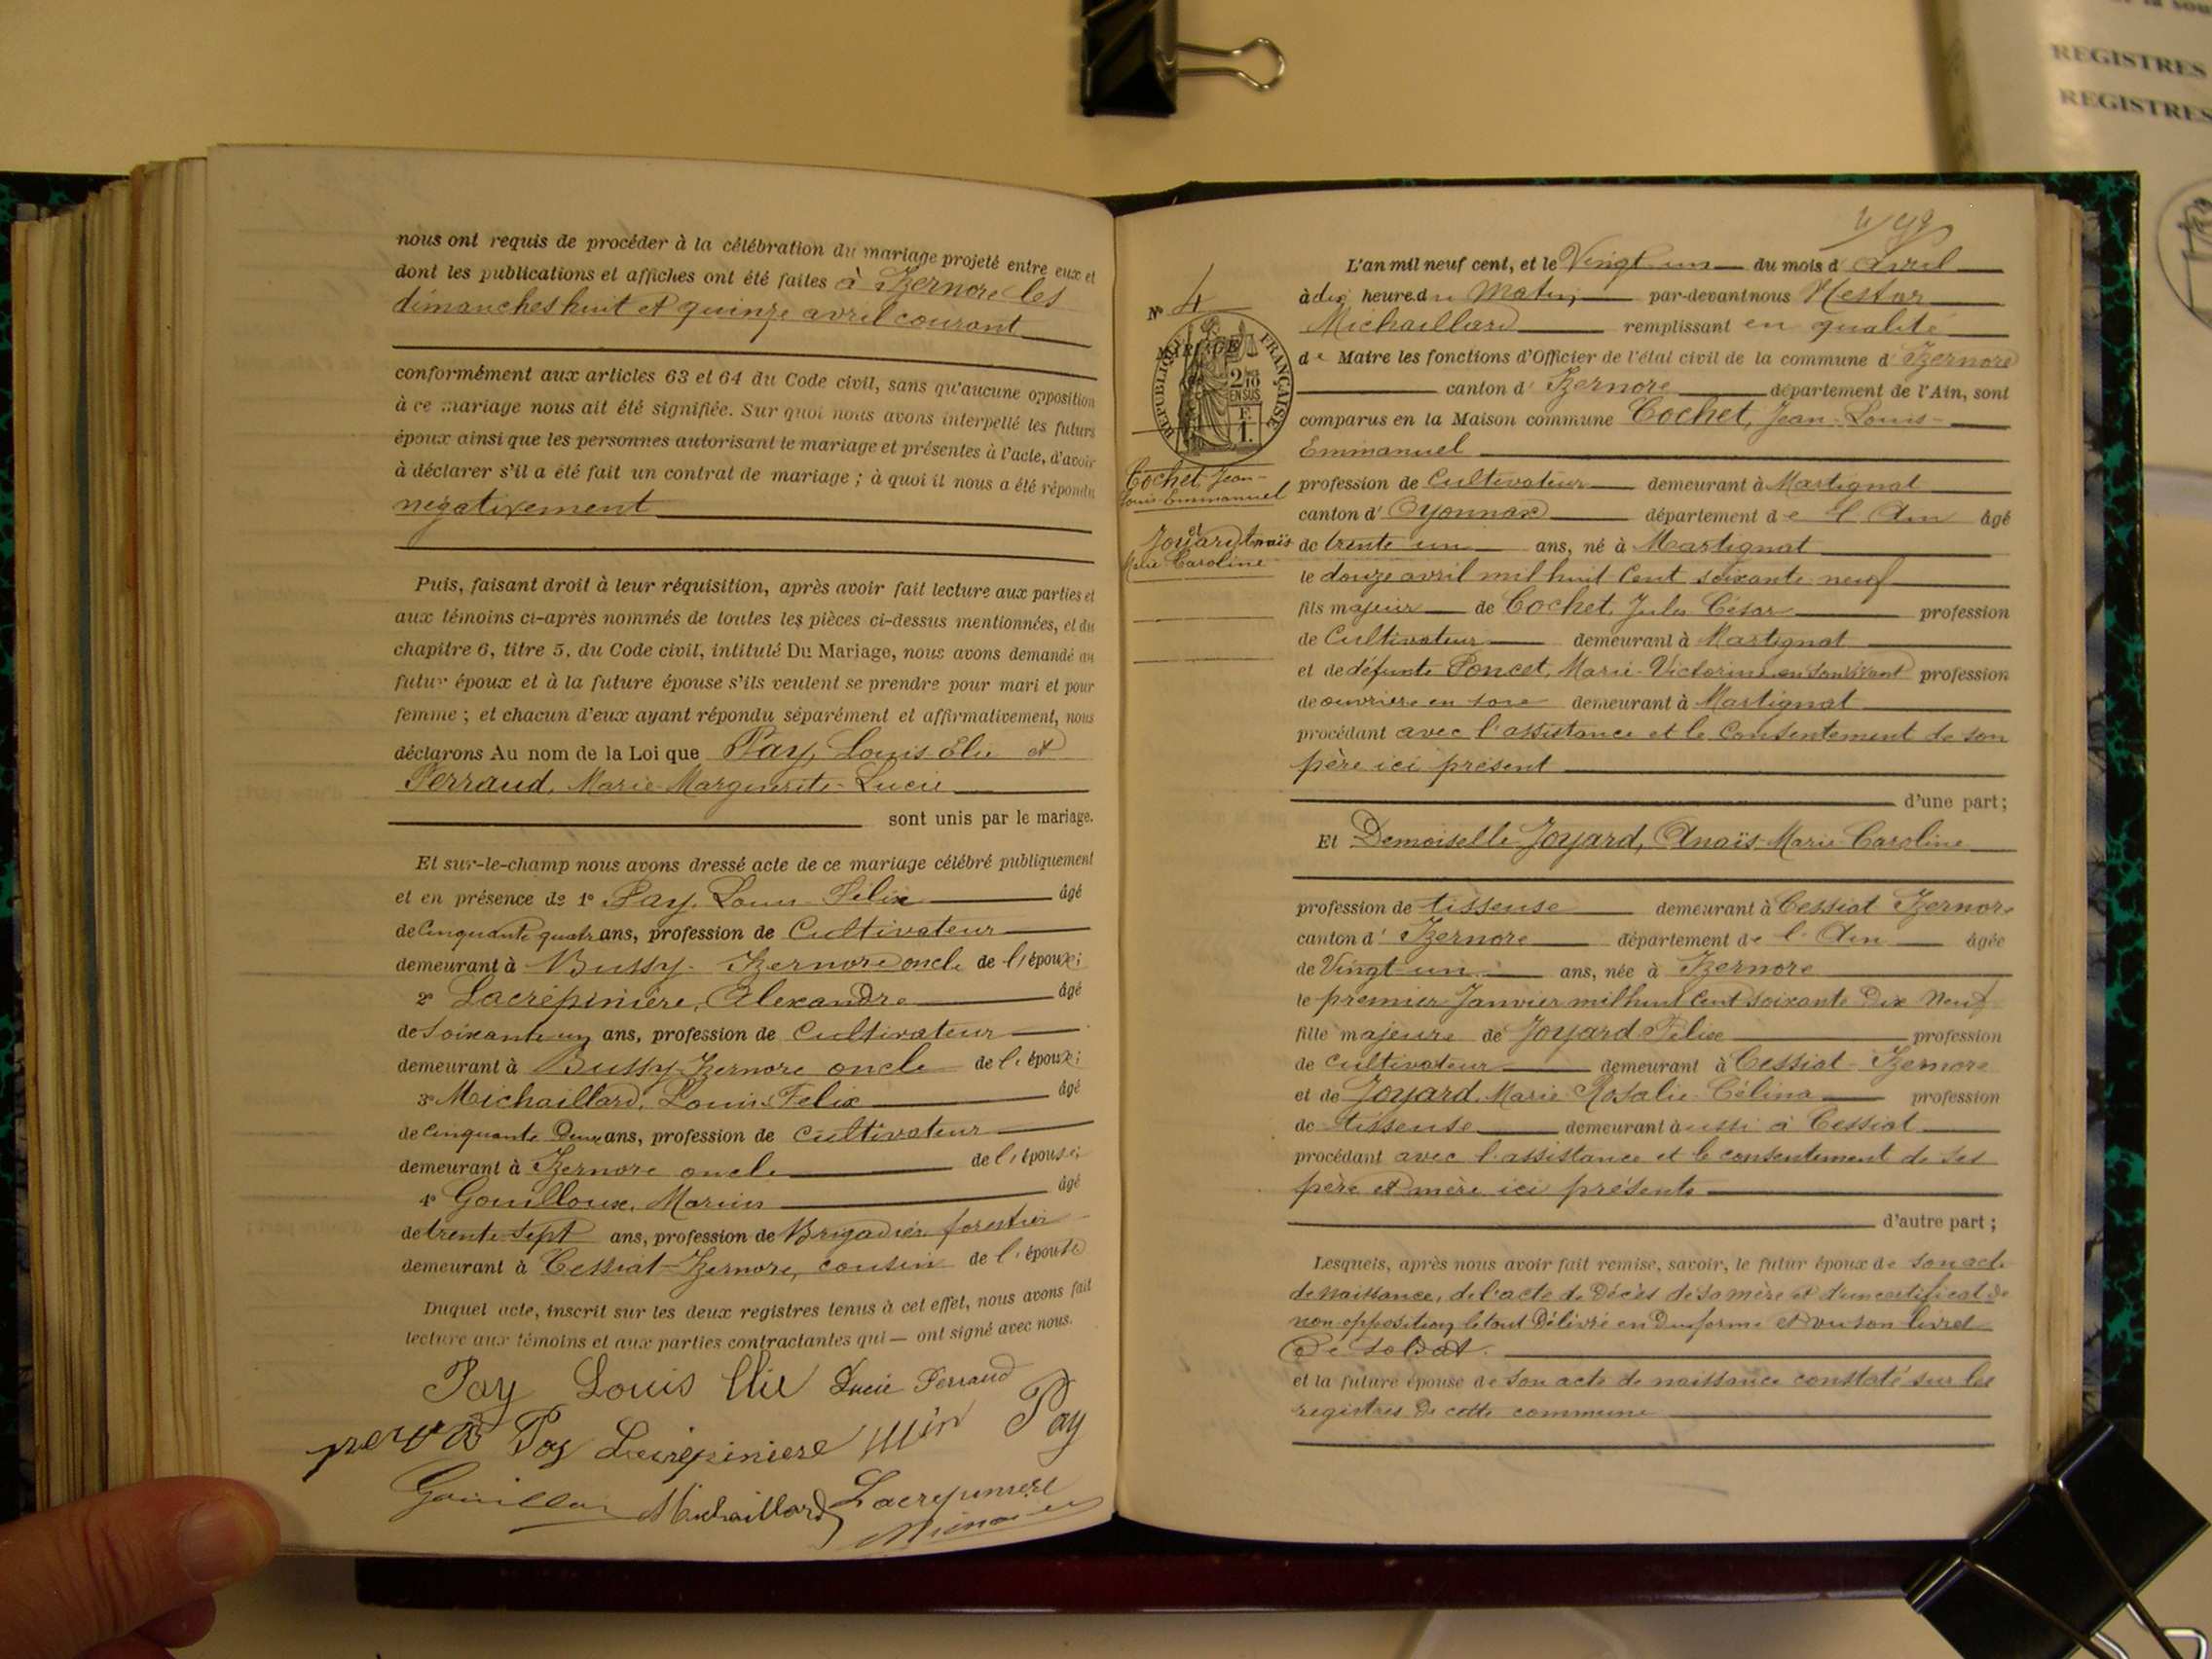 nous ont requis de procéder à la célébration du mariage projeté entre eux et
dont les publications et affiches ont été faites à Izernore les
dimanches huit et quinze avril courant
conformément aux articles 63 et 64 du Code civil, sans qu'aucune opposition
à ce mariage nous ait été signifiée. Sur quoi nous avons interpellé les futurs
époux ainsi que les personnes autorisant le mariage et présentes à l'acte, d'avoir
à déclarer s'il a été fait un contrat de mariage ; à quoi il nous a été répondu
négativement
Puis, faisant droit à leur réquisition, après avoir fait lecture aux parties et
aux témoins ci-après nommés de toutes les pièces ci-dessus mentionnées, et du
chapitre 6, titre 5, du Code civil, intitulé Du Mariage, nous avons demandé au
futur époux et à la future épouse s'ils veulent se prendre pour mari et pour
femme ; et chacun d'eux ayant répondu séparément et affirmativement, nous
déclarons Au nom de la Loi que Pay, Louis Elie et
Perraud, Marie-Marguerite-Lucie
sont unis par le mariage.
Et sur-le-champ nous avons dressé acte de ce mariage célébré publiquement
et en présence de 1° Pay, Louis Félix âgé
de cinquante quatre ans, profession de Cultivateur
demeurant à Bussy-Izernore oncle de l'époux ;
2° Lacrépinière, Alexandre âgé
de soixante un ans, profession de Cultivateur
demeurant à Bussy-Izernore oncle de l'époux ;
3° Michaillard, Louis Felix âgé
de cinquante Deux ans, profession de Cultivateur
demeurant à Izernore oncle de l'épouse ;
4° Gouilloux, Marius âgé
de trente sept ans, profession de Brigadier forestier
demeurant à Cessiat-Izernore, cousin de l'épouse
Duquel acte, inscrit sur les deux registres tenus à cet effet, nous avons fait
lecture aux témoins et aux parties contractantes qui — ont signé avec nous.
Pay Louis Elie Lucie Perraud
Pay Lacrépiniere Pay
Gouilloux Michaillard Lacrepiniere
N° 4
RÉPUBLIQUE FRANÇAISE
2/10 EN SUS
F. 1.
Cochet Jean-
Louis-Emmanuel
et
Joyard Anaïs
Marie Caroline
L'an mil neuf cent, et le Vingt un du mois d'avril
à dix heures du Matin, par-devant nous Nestor
Michaillard remplissant en qualité
de Maire les fonctions d'Officier de l'état civil de la commune d'Izernore
canton d'Izernore département de l'Ain, sont
comparus en la Maison commune Cochet, Jean-Louis-
Emmanuel
profession de Cultivateur demeurant à Martignat
canton d'Oyonnax département de l'Ain âgé
de trente un ans, né à Martignat
le douze avril mil huit Cent soixante neuf
fils majeur de Cochet, Jules César profession
de Cultivateur demeurant à Martignat
et de défunte Poncet, Marie-Victorine en son vivant profession
de ouvrière en soie demeurant à Martignat
procédant avec l'assistance et le Consentement de son
père ici présent
d'une part ;
Et Demoiselle Joyard, Anaïs-Marie-Caroline
profession de tisseuse demeurant à Cessiat Izernore
canton d'Izernore département de l'Ain âgée
de Vingt un ans, née à Izernore
le premier Janvier mil huit Cent soixante Dix Neuf
fille majeure de Joyard Félix profession
de cultivateur demeurant à Cessiat-Izernore
et de Joyard, Marie-Rosalie-Célina profession
de tisseuse demeurant aussi à Cessiat
procédant avec l'assistance et le consentement de ses
père et mère ici présents
d'autre part ;
Lesquels, après nous avoir fait remise, savoir, le futur époux de son acte
de naissance, de l'acte de Décès de sa mère et d'un certificat de
non-opposition le tout Délivré en Due forme et vu son livret
de soldat.
et la future épouse de son acte de naissance constaté sur les
registres de cette commune
REGISTRES
REGISTRES